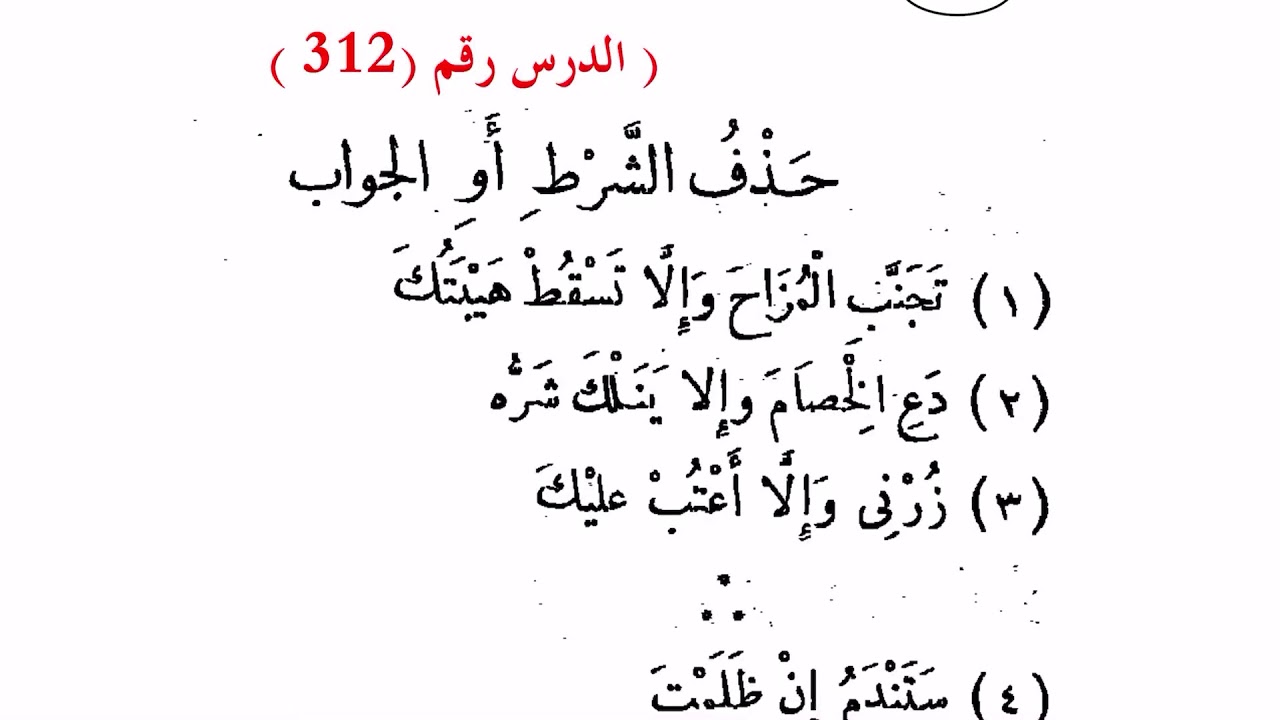 ( الدرس رقم (312 )
حَذْفُ الشَّرْطِ أَوِ الجواب
(١) تَجَنَّبِ الْمُزَاحَ وَإِلَّا تَسْقُطْ هَيْبَتُكَ
(٢) دَعِ الْخِصَامَ وإِلا يَنَلْكَ شَرُّه
(٣) زُرْنِى وَإِلَّا أَعْتُبْ عليْكَ
(٤) سَتَنْدَمُ إِنْ ظَلَمْتَ